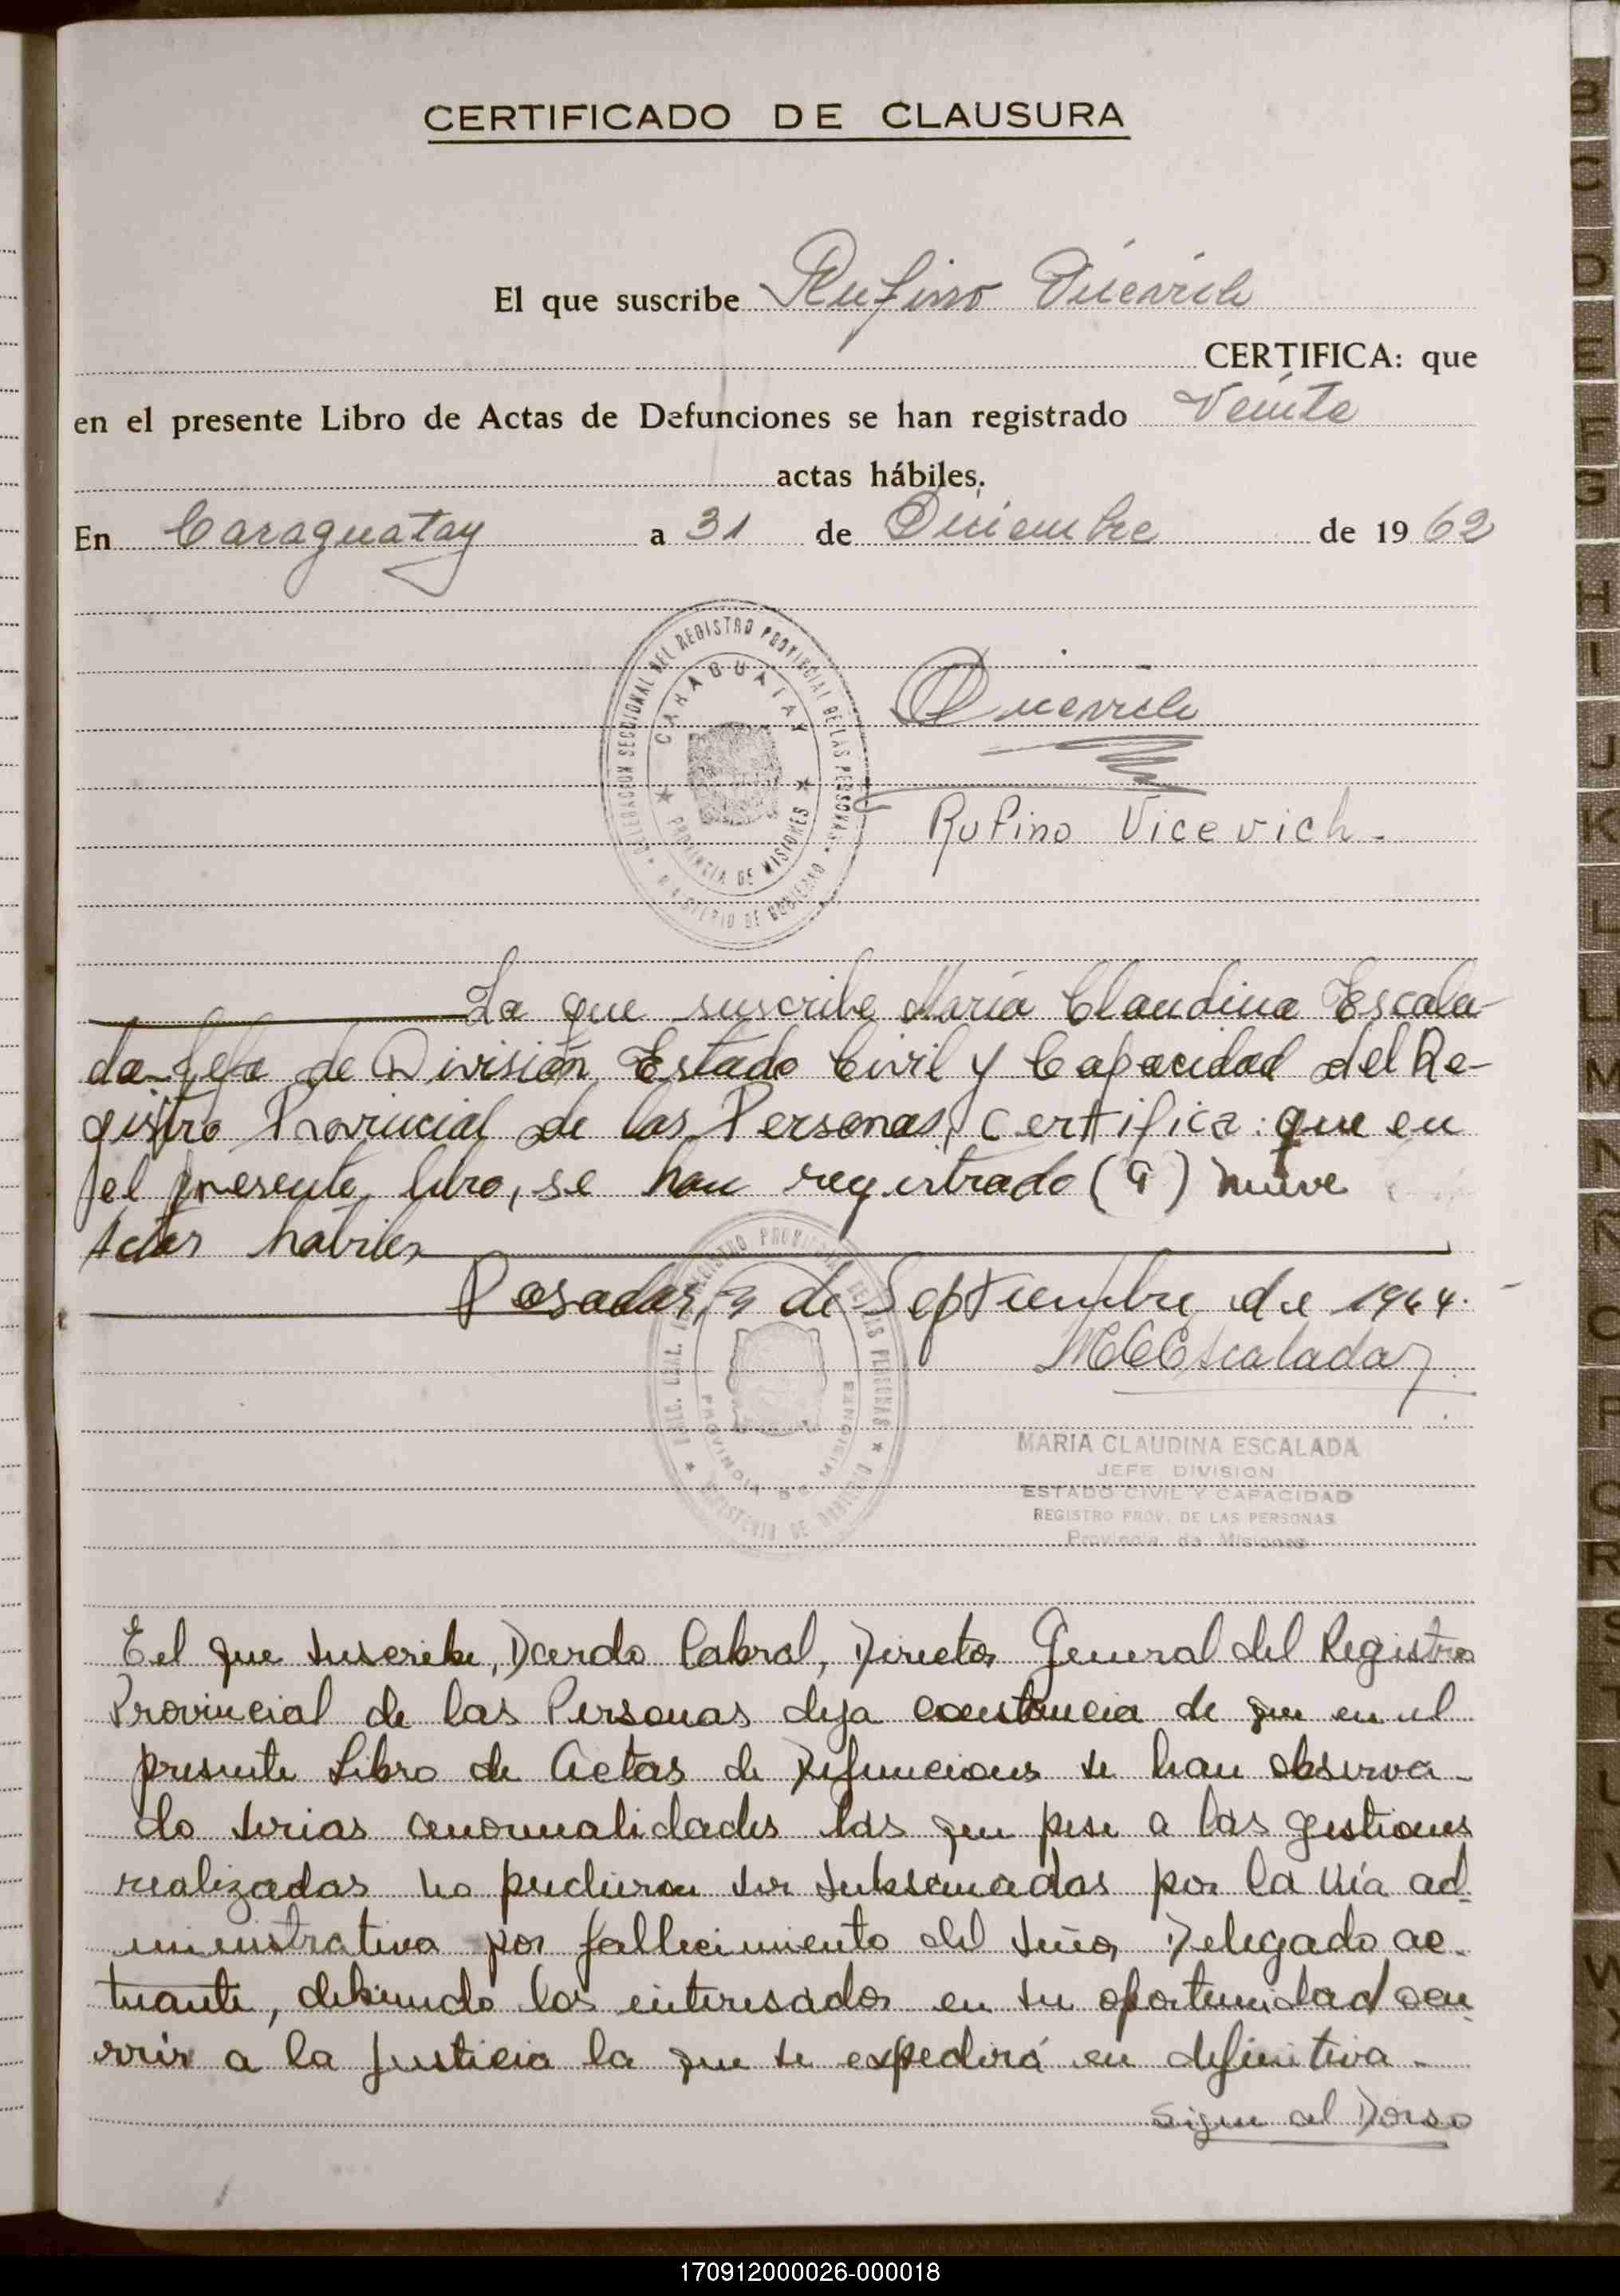 CERTIFICADO DE CLAUSURA
El que suscribe Rufino Vicevich
CERTIFICA: que
en el presente Libro de Actas de Defunciones se han registrado Veinte
actas hábiles.
En Caraguatay a 31 de Diciembre de 1962
DELEGACION SECCIONAL DEL REGISTRO PROVINCIAL DE LAS PERSONAS
CARAGUATAY
PROVINCIA DE MISIONES
MINISTERIO DE GOBIERNO
Vicevich
Rufino Vicevich-
La que suscribe María Claudina Escala-
da-Jefe de División Estado Civil y Capacidad del Re-
gistro Provincial de las Personas, certifica: que en
el presente libro, se han registrado (9) nueve
Actas habiles
Posadas, de Septiembre de 1964.
MCEscalada
REGISTRO PROVINCIAL DE LAS PERSONAS
PROVINCIA DE MISIONES
MINISTERIO DE GOBIERNO
MARIA CLAUDINA ESCALADA
JEFE DIVISION
ESTADO CIVIL Y CAPACIDAD
REGISTRO PROV. DE LAS PERSONAS
Provincia de Misiones
El que suscribe, Dardo Cabral, Director General del Registro
Provincial de las Personas deja constancia de que en el
presente Libro de Actas de Defunciones se han observa-
do serias anormalidades las que pese a las gestiones
realizadas no pudieron ser subsanadas por la vía ad-
ministrativa por fallecimiento del señor Delegado ac-
tuante, debiendo los interesados en su oportunidad ocu-
rrir a la justicia la que se expedirá en definitiva.-
Sigue al Dorso
B
C
D
E
F
G
H
I
J
K
L
LL
M
N
Ñ
O
P
Q
R
S
T
U
V
W
X
Y
Z
170912000026-000018